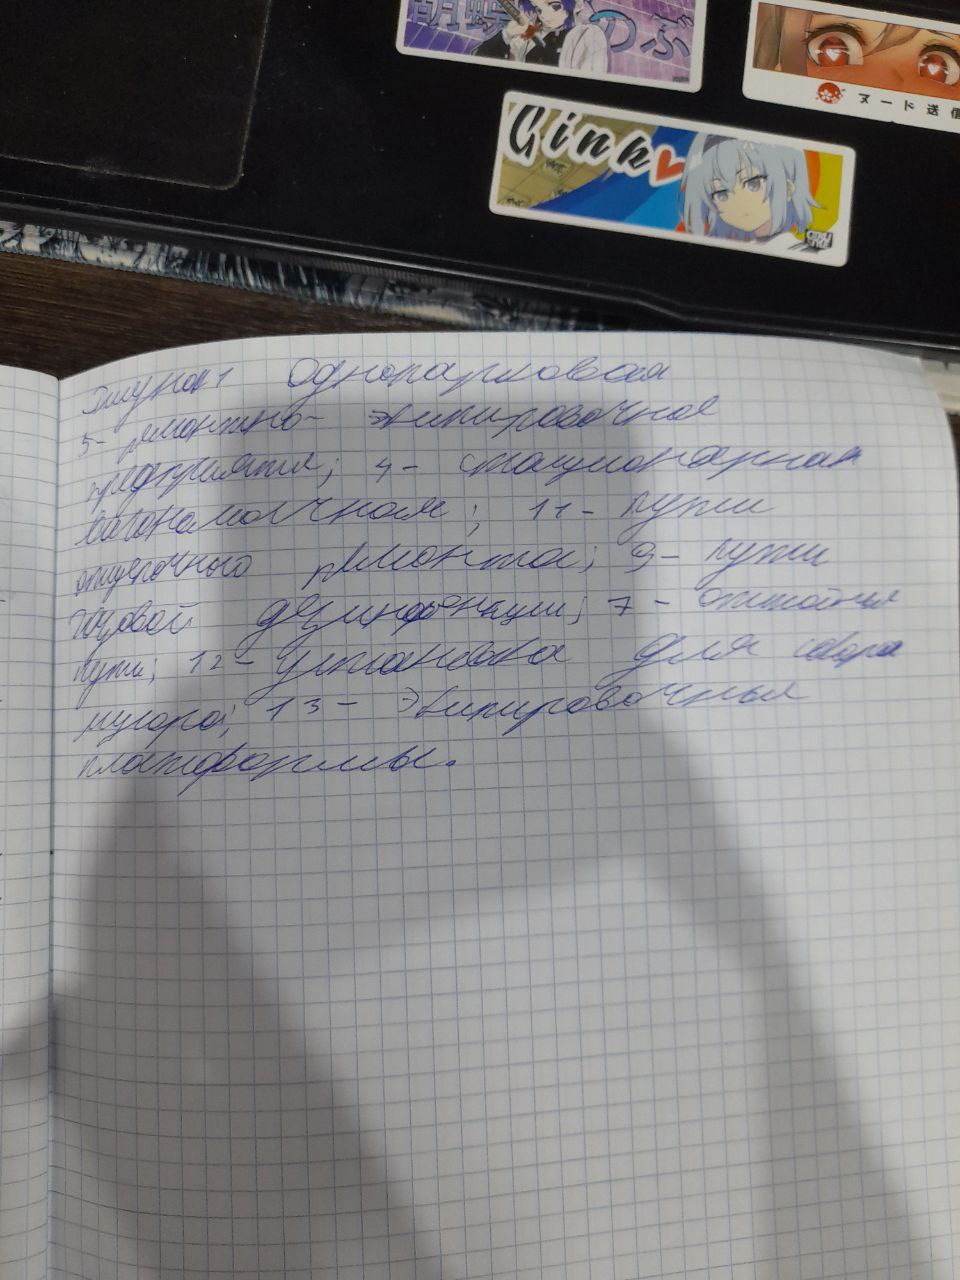 胡蝶しのぶ
ヌード送信
Gink
Рисунок 1 Однопарковая
5- ремонтно- экипировочное
предприятие; 4- стационарная
вагономоечная; 11- пути
отцепочного ремонта; 9- пути
газовой дезинфекции; 7- отстойные
пути; 12- установка для сбора
мусора; 13- экипировочные
платформы.